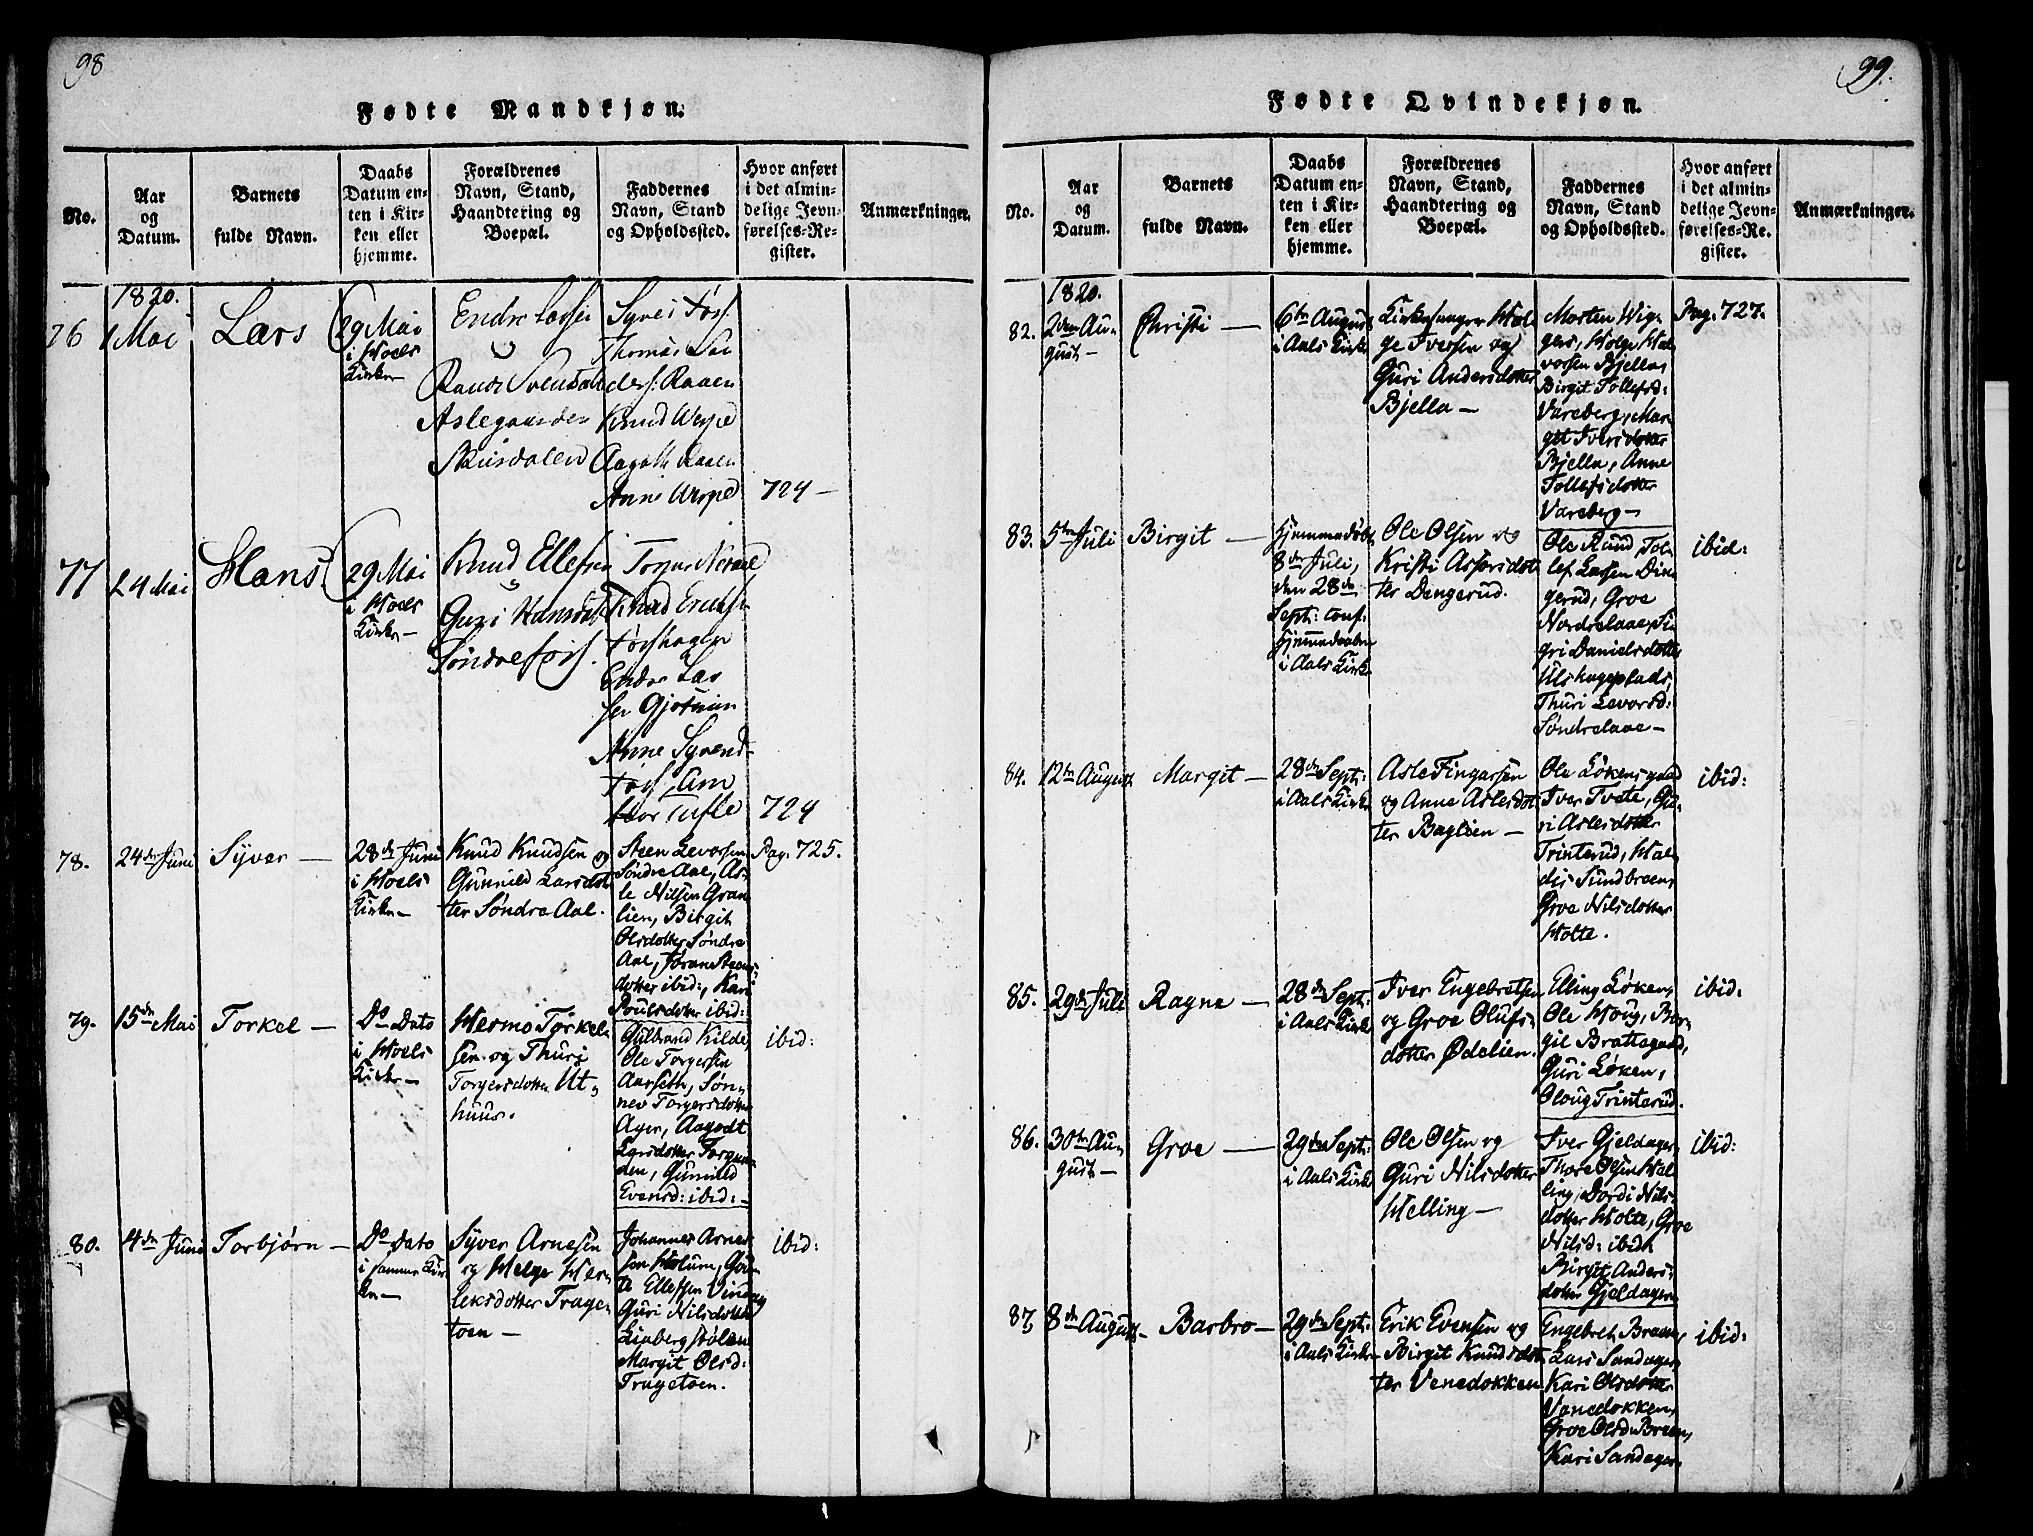 98
Fødte Mandkjøn.
No.
Aar
og
Datum.
Barnets
fulde Navn.
Daabs
Datum en-
ten i Kir-
ken eller
hjemme.
Forældrenes
Navn, Stand,
Haandtering og
Boepæl.
Faddernes
Navn, Stand
og Opholdssted.
Hvor anført
i det almin-
delige Jevn-
førelses-Re-
gister.
Anmærkninger.
1820.
76
1 Mai
Lars
29 Mai
i Hoels
Kirke
Endre Larsen
Aslegaarden
Thomas
Raaen
Knud Werpe
Aagoth Raaen
Anne Werpe
724 —
77
24 Mai
Hans
29 Mai
i Hoels
Kirke
Knud Ellefsen
Guri Hansdat
Søndre
Anne Syvend
724
78.
24de Juni
Syver —
28de Juni
i Hoels
Kirke —
Knud Knudsen og
Gunnild Larsdot
ter Søndre Aal.
Steen Levorsen
Søndre Aal, As-
le Nilsen Gran
lien, Birgit
Olsdotter Søndre
Aal, Jøran Steens-
dotter ibid:, Kari
Poulsdotter ibid:
Pag. 725.
79.
15de Mai
Torkel —
Do Dato
i Hoels
Kirke —
Hermo Torkel
sen og Thuri
Torgersdotter Ut-
huus.
Gulbrand Kilde,
Ole Torgersen
Aarseth, Søn-
nev Torgersdotter
Ager, Aagodt
Larsdotter
den, Gunnild
Evensd: ibid: —
ibid:
80.
4de Juni
Torbjørn —
Do Dato
i samme Kir
ke —
Syver Arnesen
og Helge Her-
leksdotter Trage-
toen —
Johannes Arne-
sen
Ellefsen
Guri Nilsdotter
Liaberg støilen
Margit Olsd:
Tragetoen.
ibid:
99.
Fødte Qvindekjøn.
No.
Aar
og
Datum.
Barnets
fulde Navn.
Daabs
Datum en-
ten i Kir-
ken eller
hjemme.
Forældrenes
Navn, Stand,
Haandtering og
Boepæl.
Faddernes
Navn, Stand
og Opholdssted.
Hvor anført
i det almin-
delige Jevn-
førelses-Re-
gister.
Anmærkninger.
1820.
82.
2den Au-
gust —
Christi —
6te August
i Aals Kirke
Kirkesanger Hol-
ge Iversen og
Guri Andersdotter
Bjella —
Morten Wig-
gers, Holge Hal
vorsen Bjella,
Birgit Tollefsd:
Vareberg, Mar-
git Iversdotter
Bjella, Anne
Tollefsdotter
Vareberg —
Pag. 727.
83.
5te Juli
Birgit —
Hjemmedøbt
8de Juli,
den 28de
Sept: conf.
Hjemmedaaben
i Aals Kirke
Ole Olsen og
Kristi Assorsdot
ter Dengerud.
Ole Rund, Tol-
lef Larsen Din
gerud, Groe
Nordrelaae, Si-
gri Danielsdotter
Ulshageplads,
Thuri Levorsd:
Søndrelaae —
ibid:
84.
12te August
Margit —
28de Sept:
i Aals Kirke
Asle Fingarsen
og Anne Aslesdot
ter Baglien —
Ole Løkensgaard
Iver Tveto, Gu-
ri Aslesdotter
Trinterud, Hal-
dis Sundbreen,
Groe Nilsdotter
Holte.
ibid:
85.
29de Juli
Ragne —
28de Sept:
i Aals Kirke
Iver Engebretsen
og Groe Olufs-
dotter Ødelien.
Elling Løken,
Ole Houg, Bør-
gil Brattegaard,
Guri Løken,
Oloug Trinterud.
ibid:
86.
30te Au-
gust —
Groe —
29de Sept:
i Aals Kirke
Ole Olsen og
Guri Nilsdotter
Helling —
Iver Gjeldager,
Thore Olsen Hel
ling, Dordi Nils-
dotter Holte, Groe
Nilsd: ibid:
Birgit Anders-
dotter Gjeldager
ibid:
87,
8de August
Barbro —
29de Sept:
i Aals Kirke
Erik Evensen og
Birgit Knudsdot
ter Venedokken
Engebret Braaen,
Lars Sandager,
Kari Olsdotter
Venedokken,
Groe Olsd: Braaen,
Kari Sandager
ibid: